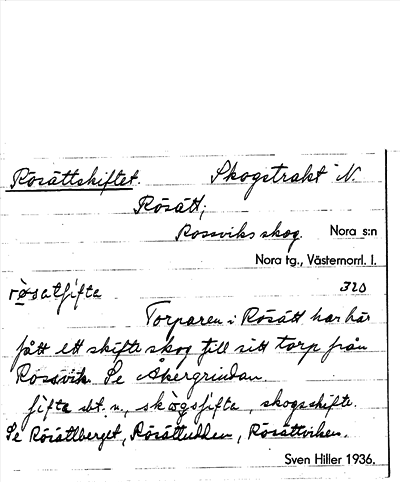 Rösättskiftet. Skogstrakt N.
Rösätt;
Rossviks skog. Nora s:n
Nora tg., Västernorrl. l.
rø̀satʃifta 320
Torparen i Rösätt har här
fått ett skifte skog till sitt torp från
Rossvik. Se Åkergrindan.
ʃifta sbt. n., skògsʃifta, skogsskifte.
Se Rösättberget, Rösättudden, Rösättviken.
Sven Hiller 1936.